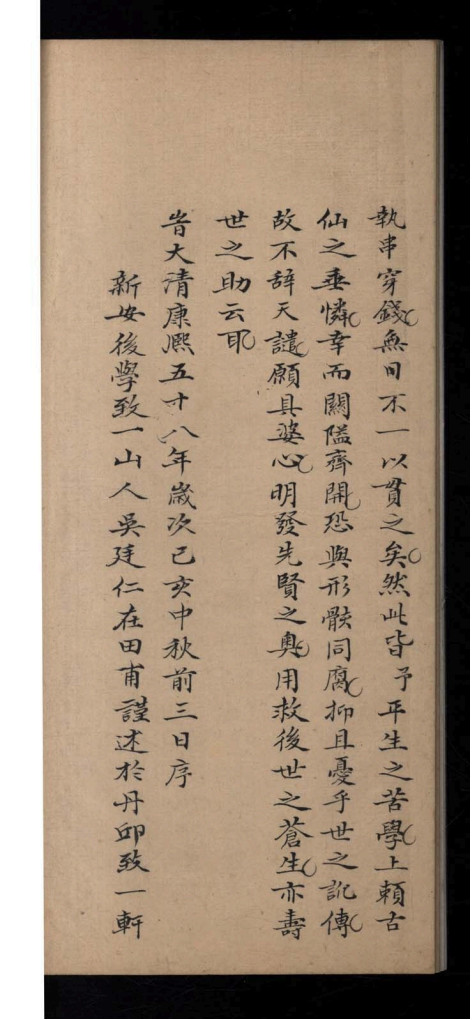 執串穿錢無日不一以貫之矣然此皆予平生之苦學上賴古
仙之垂憐幸而關隘齊開恐與形骸同腐抑且憂乎世之訛傳
故不辭天譴願具婆心明發先賢之奧用救後世之蒼生亦壽
世之助云耶
旹大清康熈五十八年歲次己亥中秋前三日序
新安後學致一山人吳廷仁在田甫謹述於丹邱致一軒